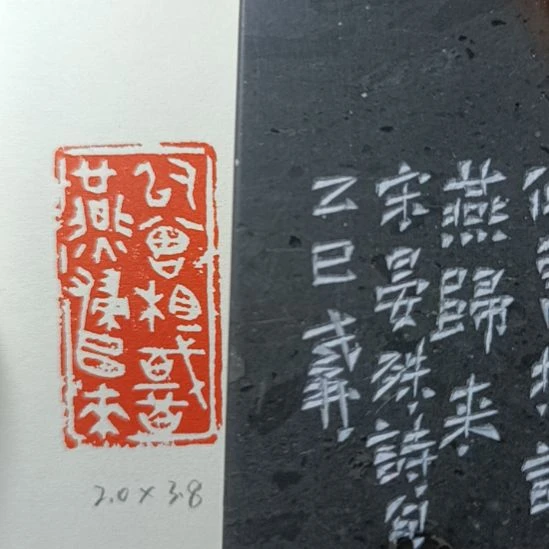 似曾相識
燕歸来
2.0×3.8
燕歸来
宋晏殊詩句
乙巳